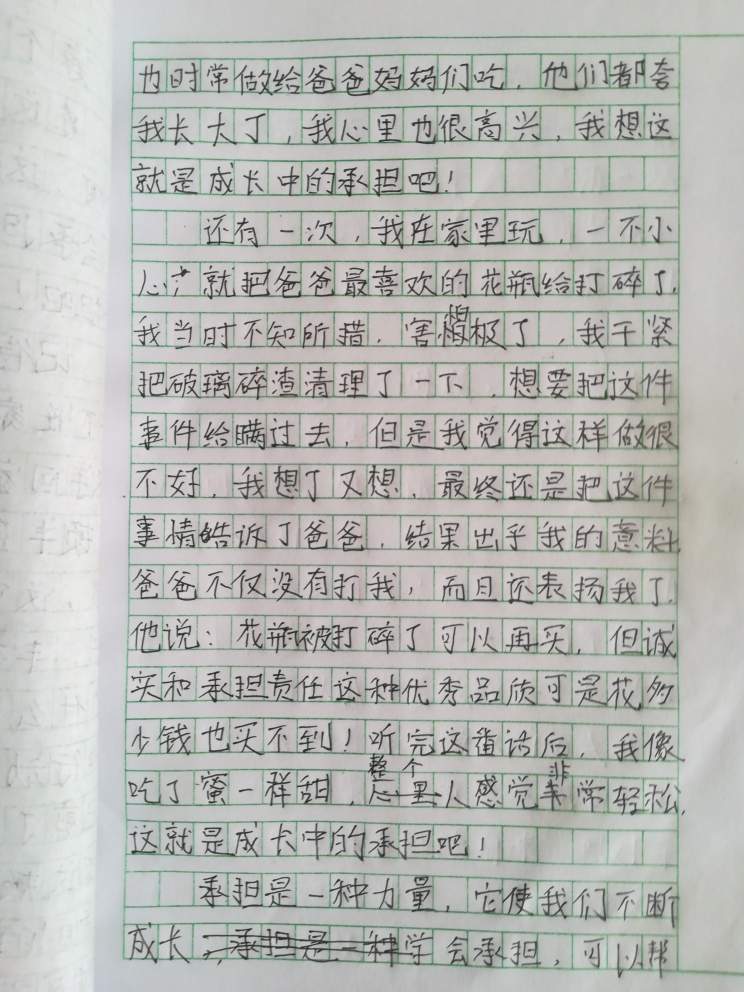 也时常做给爸爸妈妈们吃，他们都夸
我长大了，我心里也很高兴，我想这
就是成长中的承担吧！
还有一次，我在家里玩，一不小
心，就把爸爸最喜欢的花瓶给打碎了，
我当时不知所措，害怕极了，我干紧
把玻璃碎渣清理了一下，想要把这件
事件给瞒过去，但是我觉得这样做很
不好，我想了又想，最终还是把这件
事情皓诉了爸爸，结果出乎我的意料，
爸爸不仅没有打我，而且还表扬我了，
他说：花瓶被打碎了可以再买，但诚
实和承担责任这种优秀品质可是花多
少钱也买不到！听完这番话后，我像
吃了蜜一样甜，整个人感觉非常轻松，
这就是成长中的承担吧！
承担是一种力量，它使我们不断
成长，学会承担，可以帮